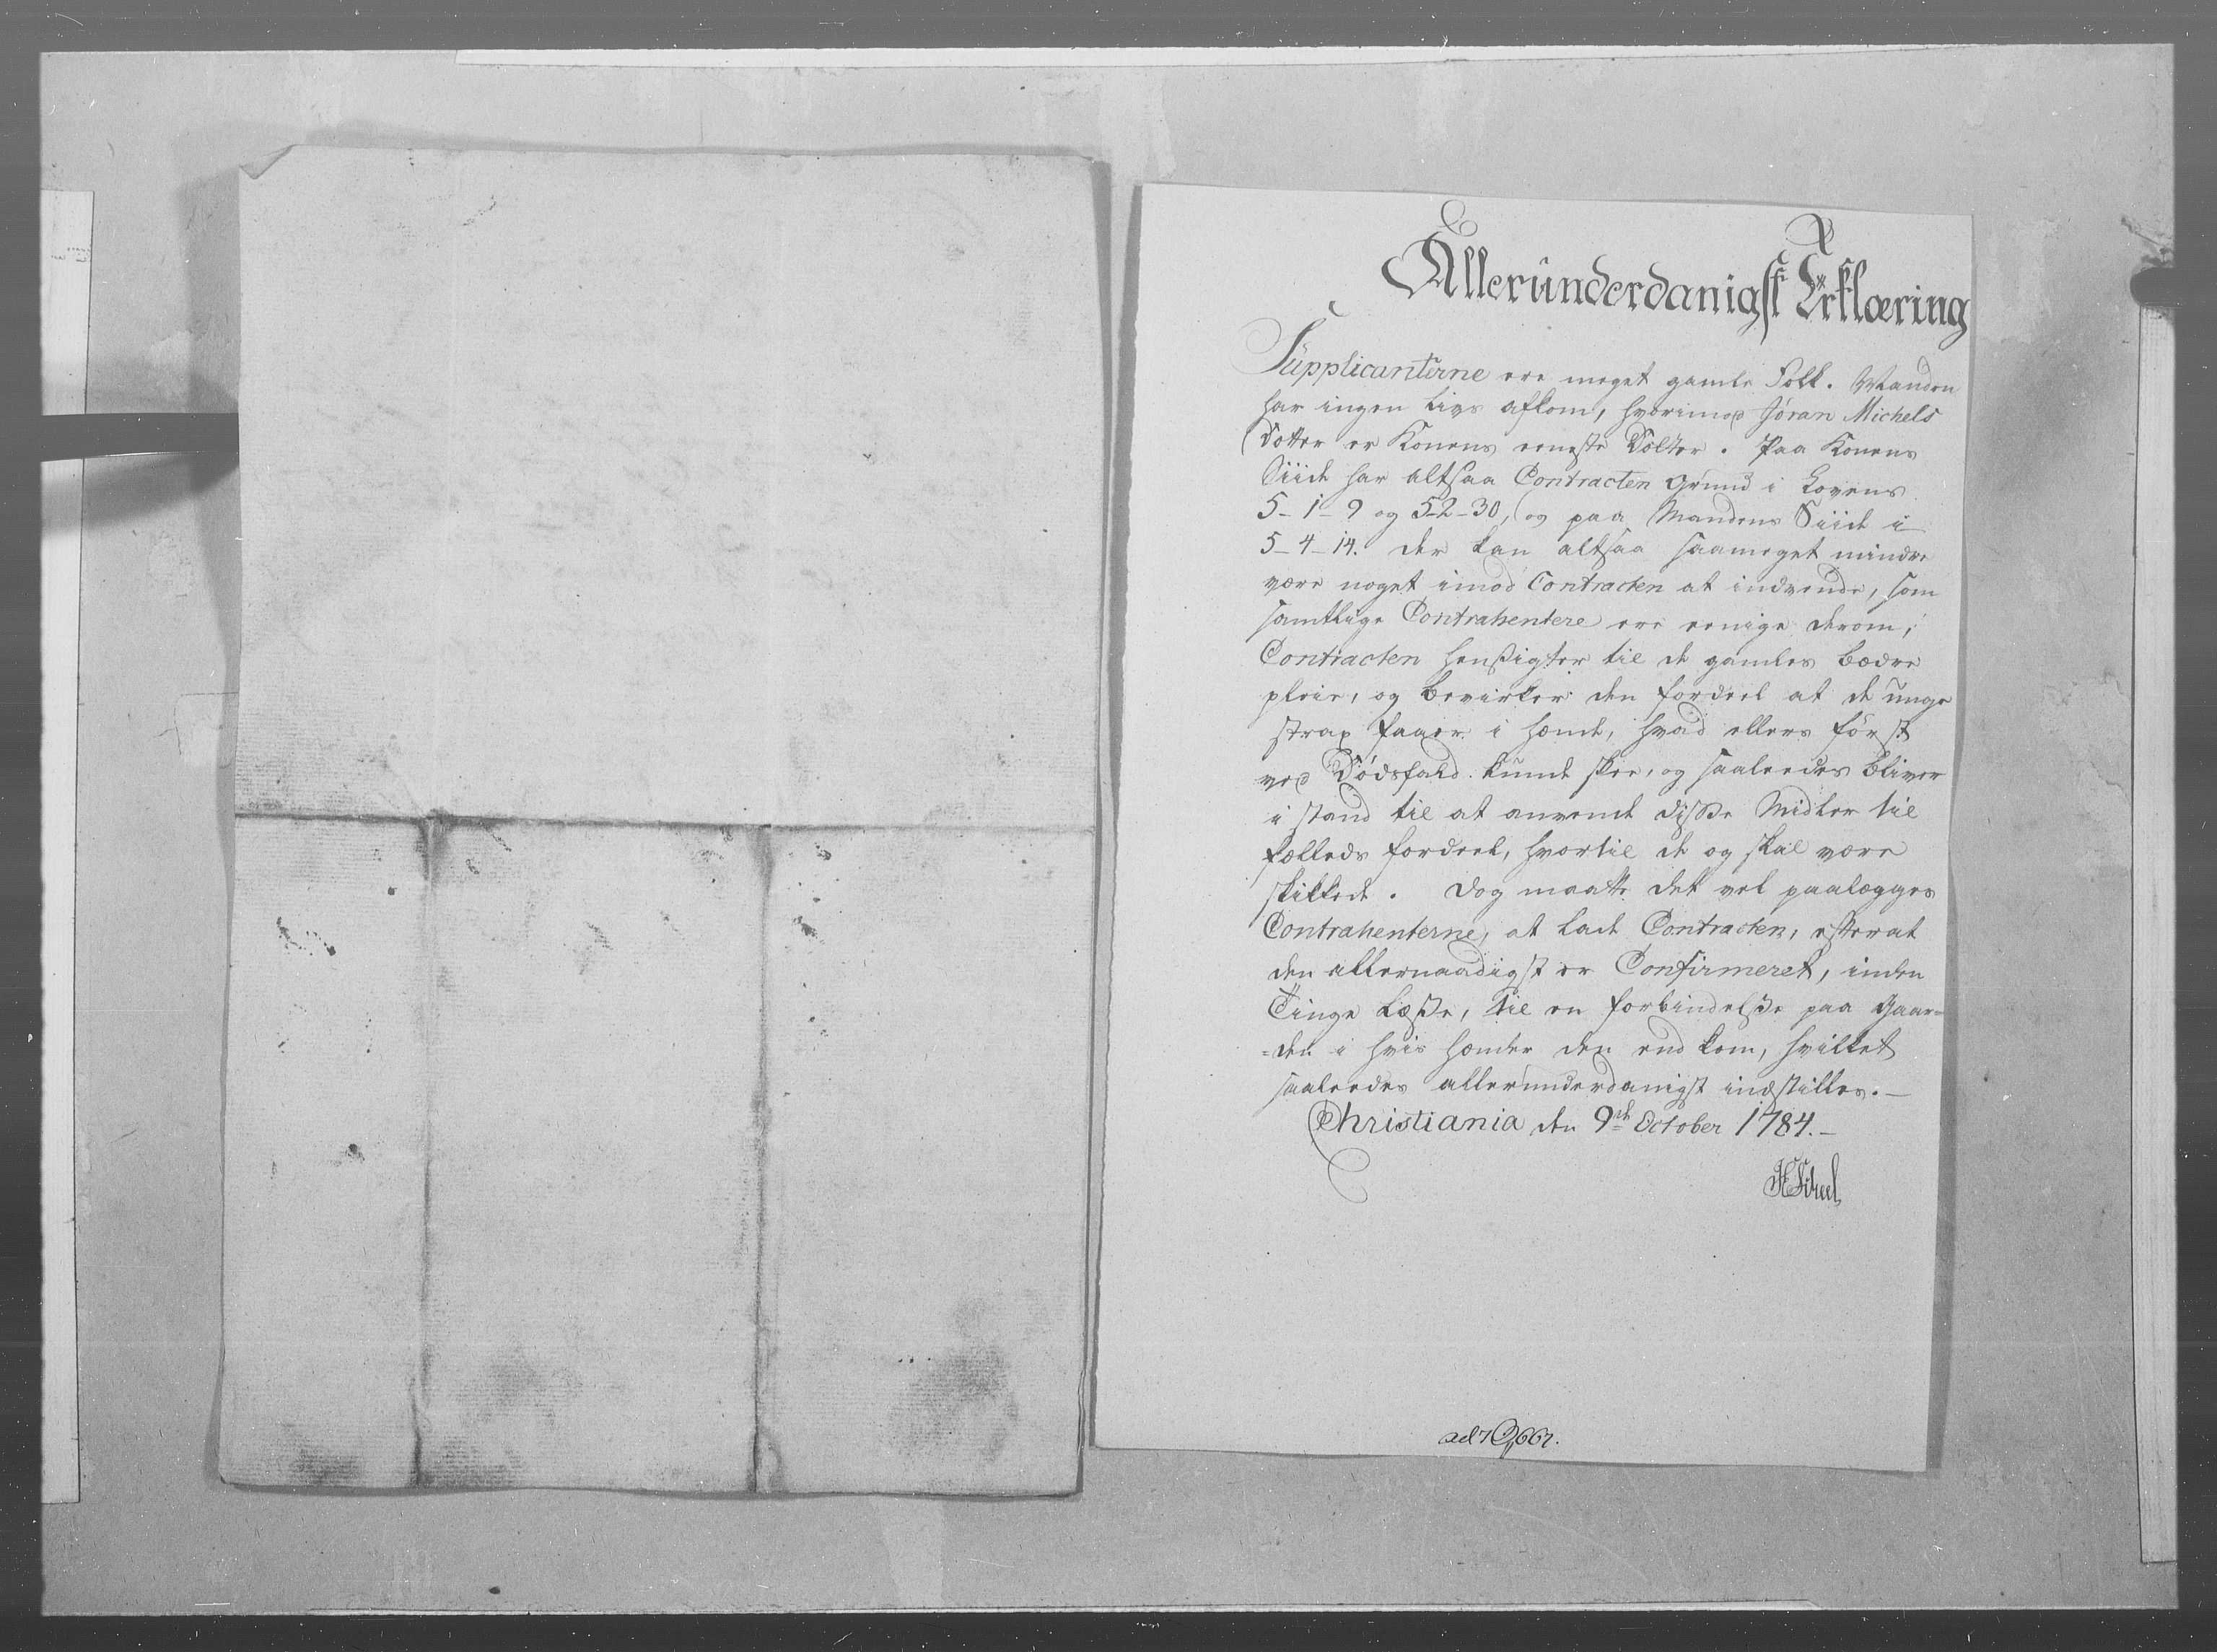 Alleründerdanigst Erklæring
Supplicanterne ere meget gamle Folk. Manden
har ingen Livs afkom, hvorimod Jöran Michels
Dotter er Konens eeneste Dotter. Paa Konens
Siide har altsaa Contracten Grund i Lovens
5-1-9 og 5-2-30, og paa Mandens Siide i
5-4-14. der kan altsaa saameget mindre
være noget imod Contracten at indvende, som
samtlige Contrahentere ere eenige derom,
Contracten hensigter til de gamles bædre
pleie, og bevirker den fordeel at de unge
strax faaer i hænde, hvad ellers först
ved Dödsfald kunde skee, og saaleedes bliver
i stand til at anvende disse Midler til
fælleds fordeel, hvortil de og skal være
skikkede. dog maatte det vel paalægges
Contrahenterne, at lade Contracten, efterat
den allernaadigst er Confirmeret, inden
Tinge læse, til en forbindelse paa Gaar=
=den i hvis hænder den end kom, hvilket
saaleedes allerunderdanigst indstilles.-
Christiania den 9de October 1784.-